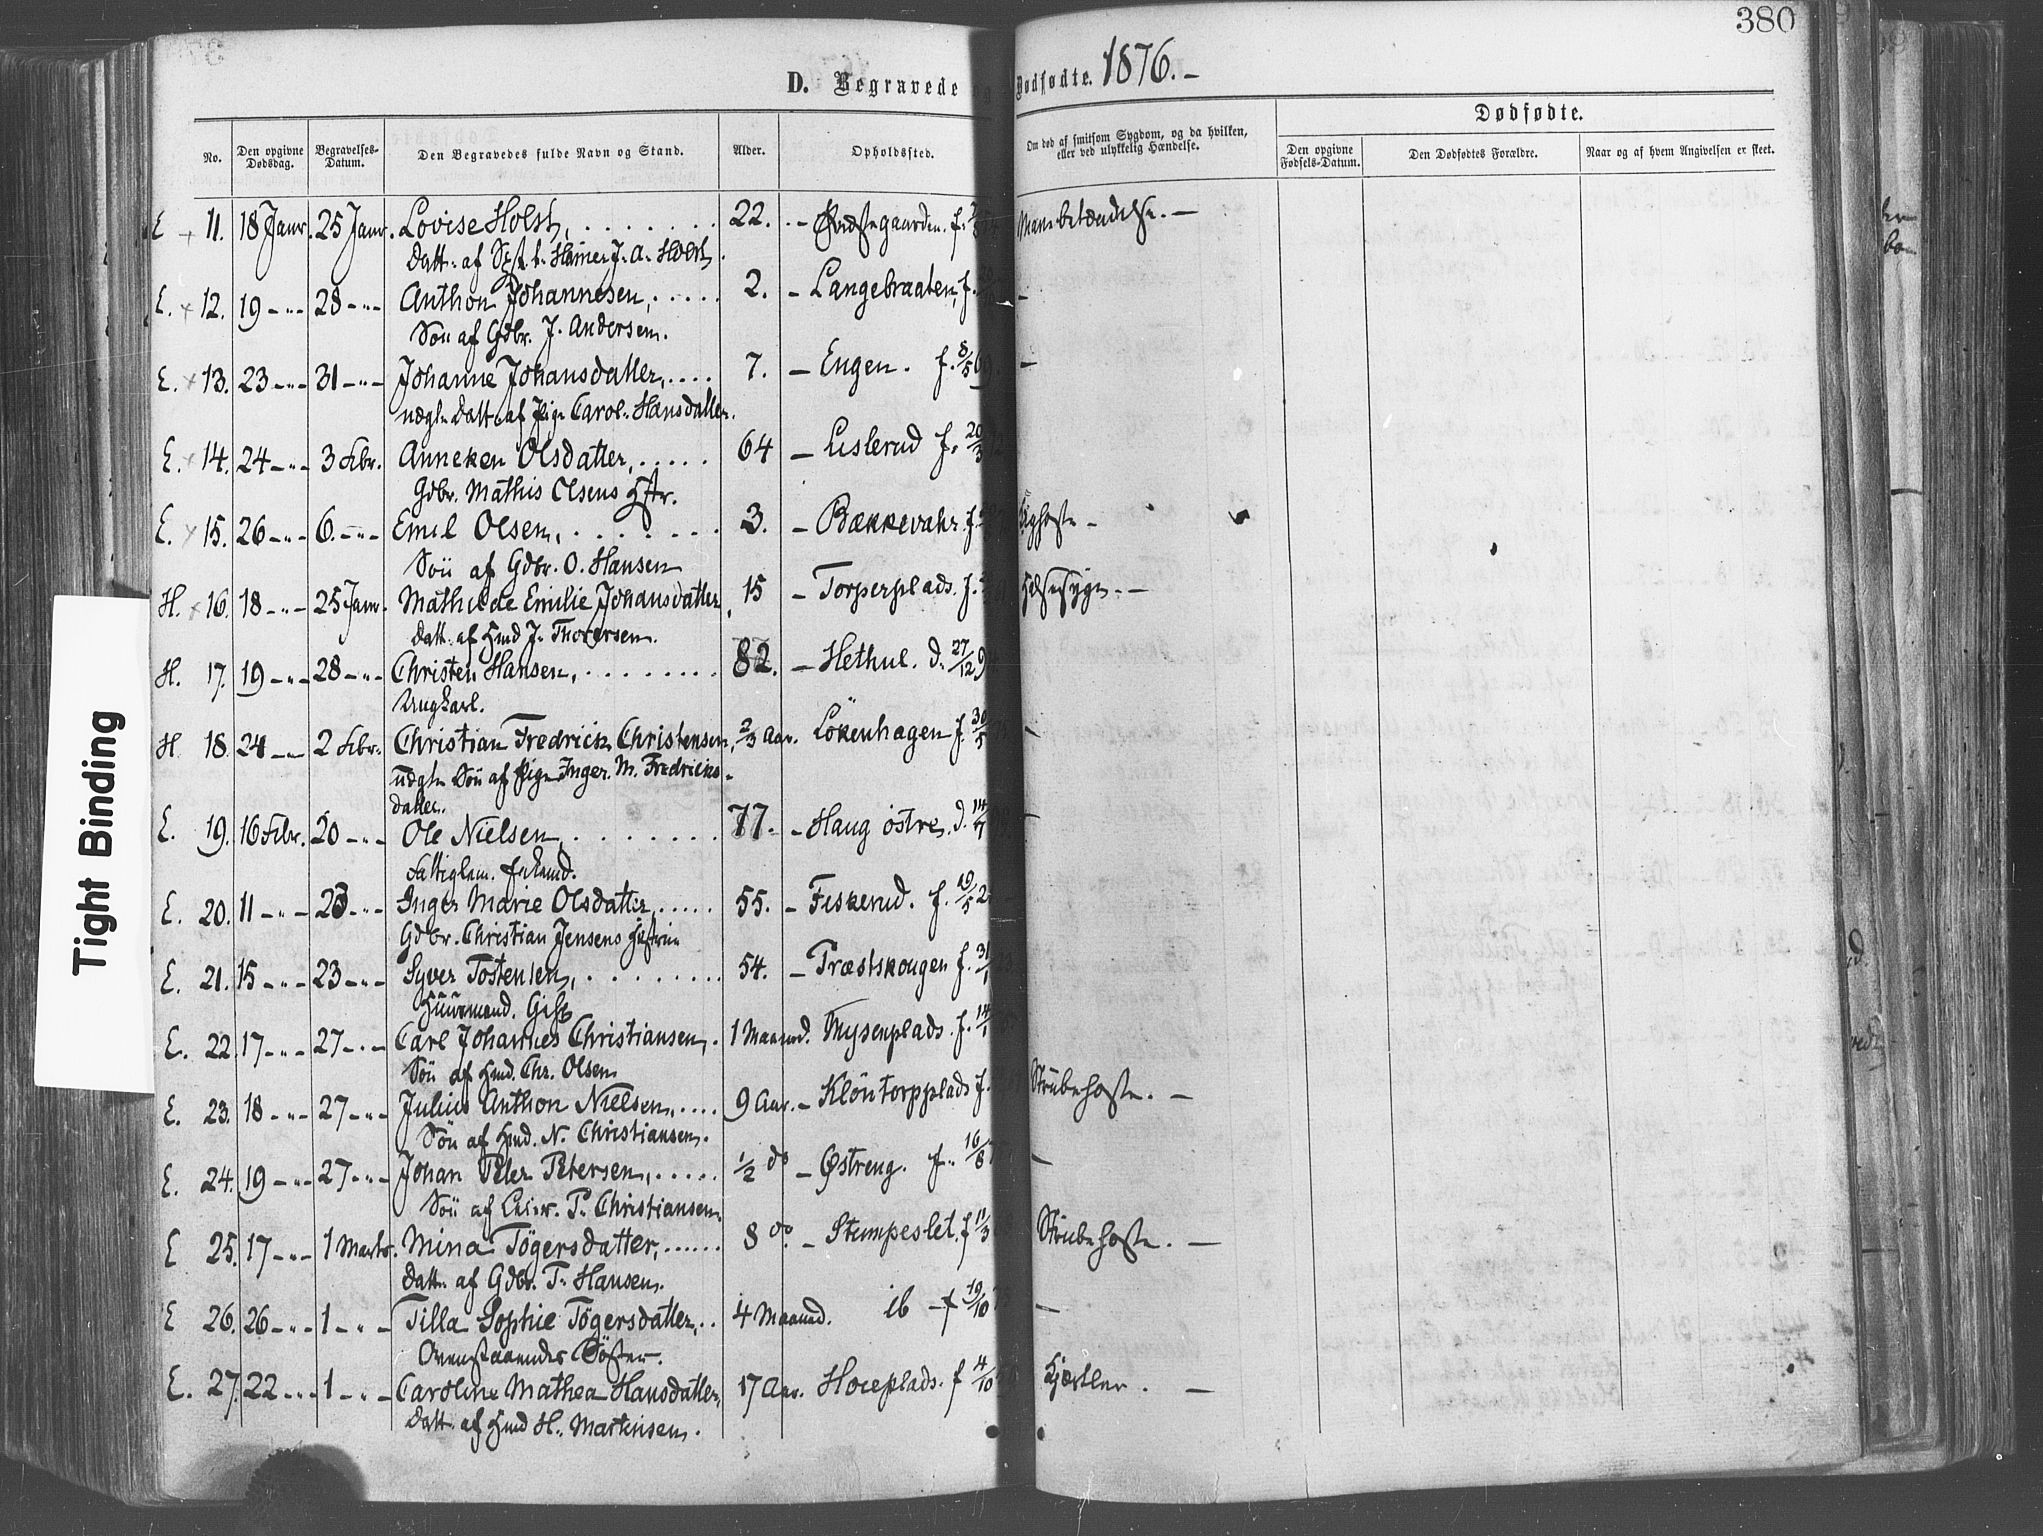 380
D. Begravede og Dødfødte. 1876. -
No. Den opgivne Dødsdag. Begravelses-Datum. Den Begravedes fulde Navn og Stand. Alder. Opholdssted. Om død af smitsom Sygdom, og da hvilken, eller ved ulykkelig Hændelse. Dødfødte.
Den opgivne Fødsels-Datum. Den Dødfødtes Forældre. Naar og af hvem Angivelsen er skeet.
E 11. 18 Janr. 25 Janr. Lovise Holst, 22. - f.
Datt. af J. A. Holst
E. 12. 19 -"- 28 -"- Anthon Johannesen, 2. - Langebraaten, f. -
Søn af Gdbr. J. Andersen.
E. 13. 23 -"- 31 -"- Johanne Johansdatter, 7. - Engen. f. 8/5 69. -
uægte Datt. af Pige Carol. Hansdatter.
E. 14. 24 -"- 3 Febr. Anneken Olsdatter, 64 - Lislerud f. 20/3
Gdbr. Mathis Olsens Hstr.
E. 15. 26 -"- 6. -"- Emil Olsen, 3. - Bækkevahr. f. Kighoste -
Søn af Gdbr. O. Hansen
H. 16. 18 -"- 25 Janr. Mathilde Emilie Johansdatter, 15 - Torperplads. f.
Datt. af Hmd J. Thoresen.
H. 17. 19 -"- 28 -"- Christen Hansen, 82. - Hethul. d. 27/12 9
Ungkarl.
H 18. 24 -"- 2 Febr. Christian Fredrick Christensen, 2/3 Aar. Lökenhagen f. 30/5 -
uægte Søn af Pige Inger M. Fredricks-
datter.
E. 19. 16 Febr. 20 -"- Ole Nielsen, 77. - Haug östre. d. 14/7 -
Fattiglem. forhend.
E. 20. 11 -"- 23 -"- Inger Marie Olsdatter, 55. - Fiskerud. f. 19/5 2
Gdbr. Christian Jensens Hustru
E. 21. 15 -"- 23 -"- Syver Tostensen, 54. - Præstskougen f. 31/1
Huusmand. Gift
E. 22. 17 -"- 27 -"- Carl Johannes Christiansen, 1 Maaned. Mysenplads. f. 14/1
Søn af Hmd. Chr. Olsen
E. 23. 18 -"- 27 -"- Julius Anthon Nielsen, 9 Aar. - Klöntorpplads f. Strubehoste. -
Søn af Hmd. N. Christiansen.
E. 24. 19 -"- 27 -"- Johan Peter Petersen, 1/2 do - Østreng. f. 16/8 -
Søn af Leier. P. Christiansen.
E 25. 17 -"- 1 Marts. Mina Tögersdatter, 8 do. - Stumpeslet. f 11/3 Strubehoste. -
Datt. af Gdbr. T. Hansen.
E 26. 26 -"- 1 -"- Tilla Sophie Tögersdatter, 4 Maaned. ib - f 19/10 -
Ovenstaaendes Søster.
E. 27. 22 -"- 1 -"- Caroline Mathea Hansdatter, 17 Aar. Hoieplads. f 4/10 -
Datt. af Hmd H. Martinsen.
Tight Binding